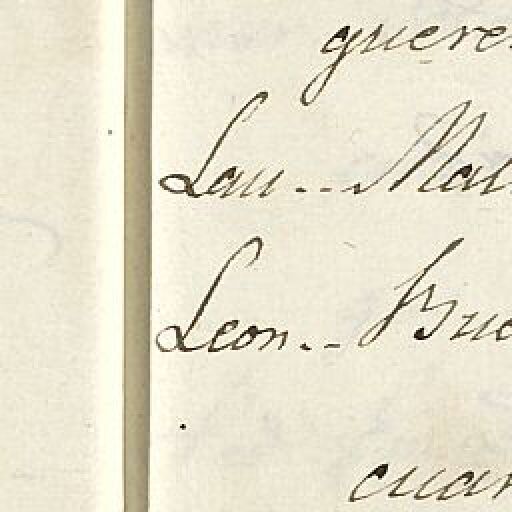 quere
Lau.. Mal
Leon.. Bue
cuan